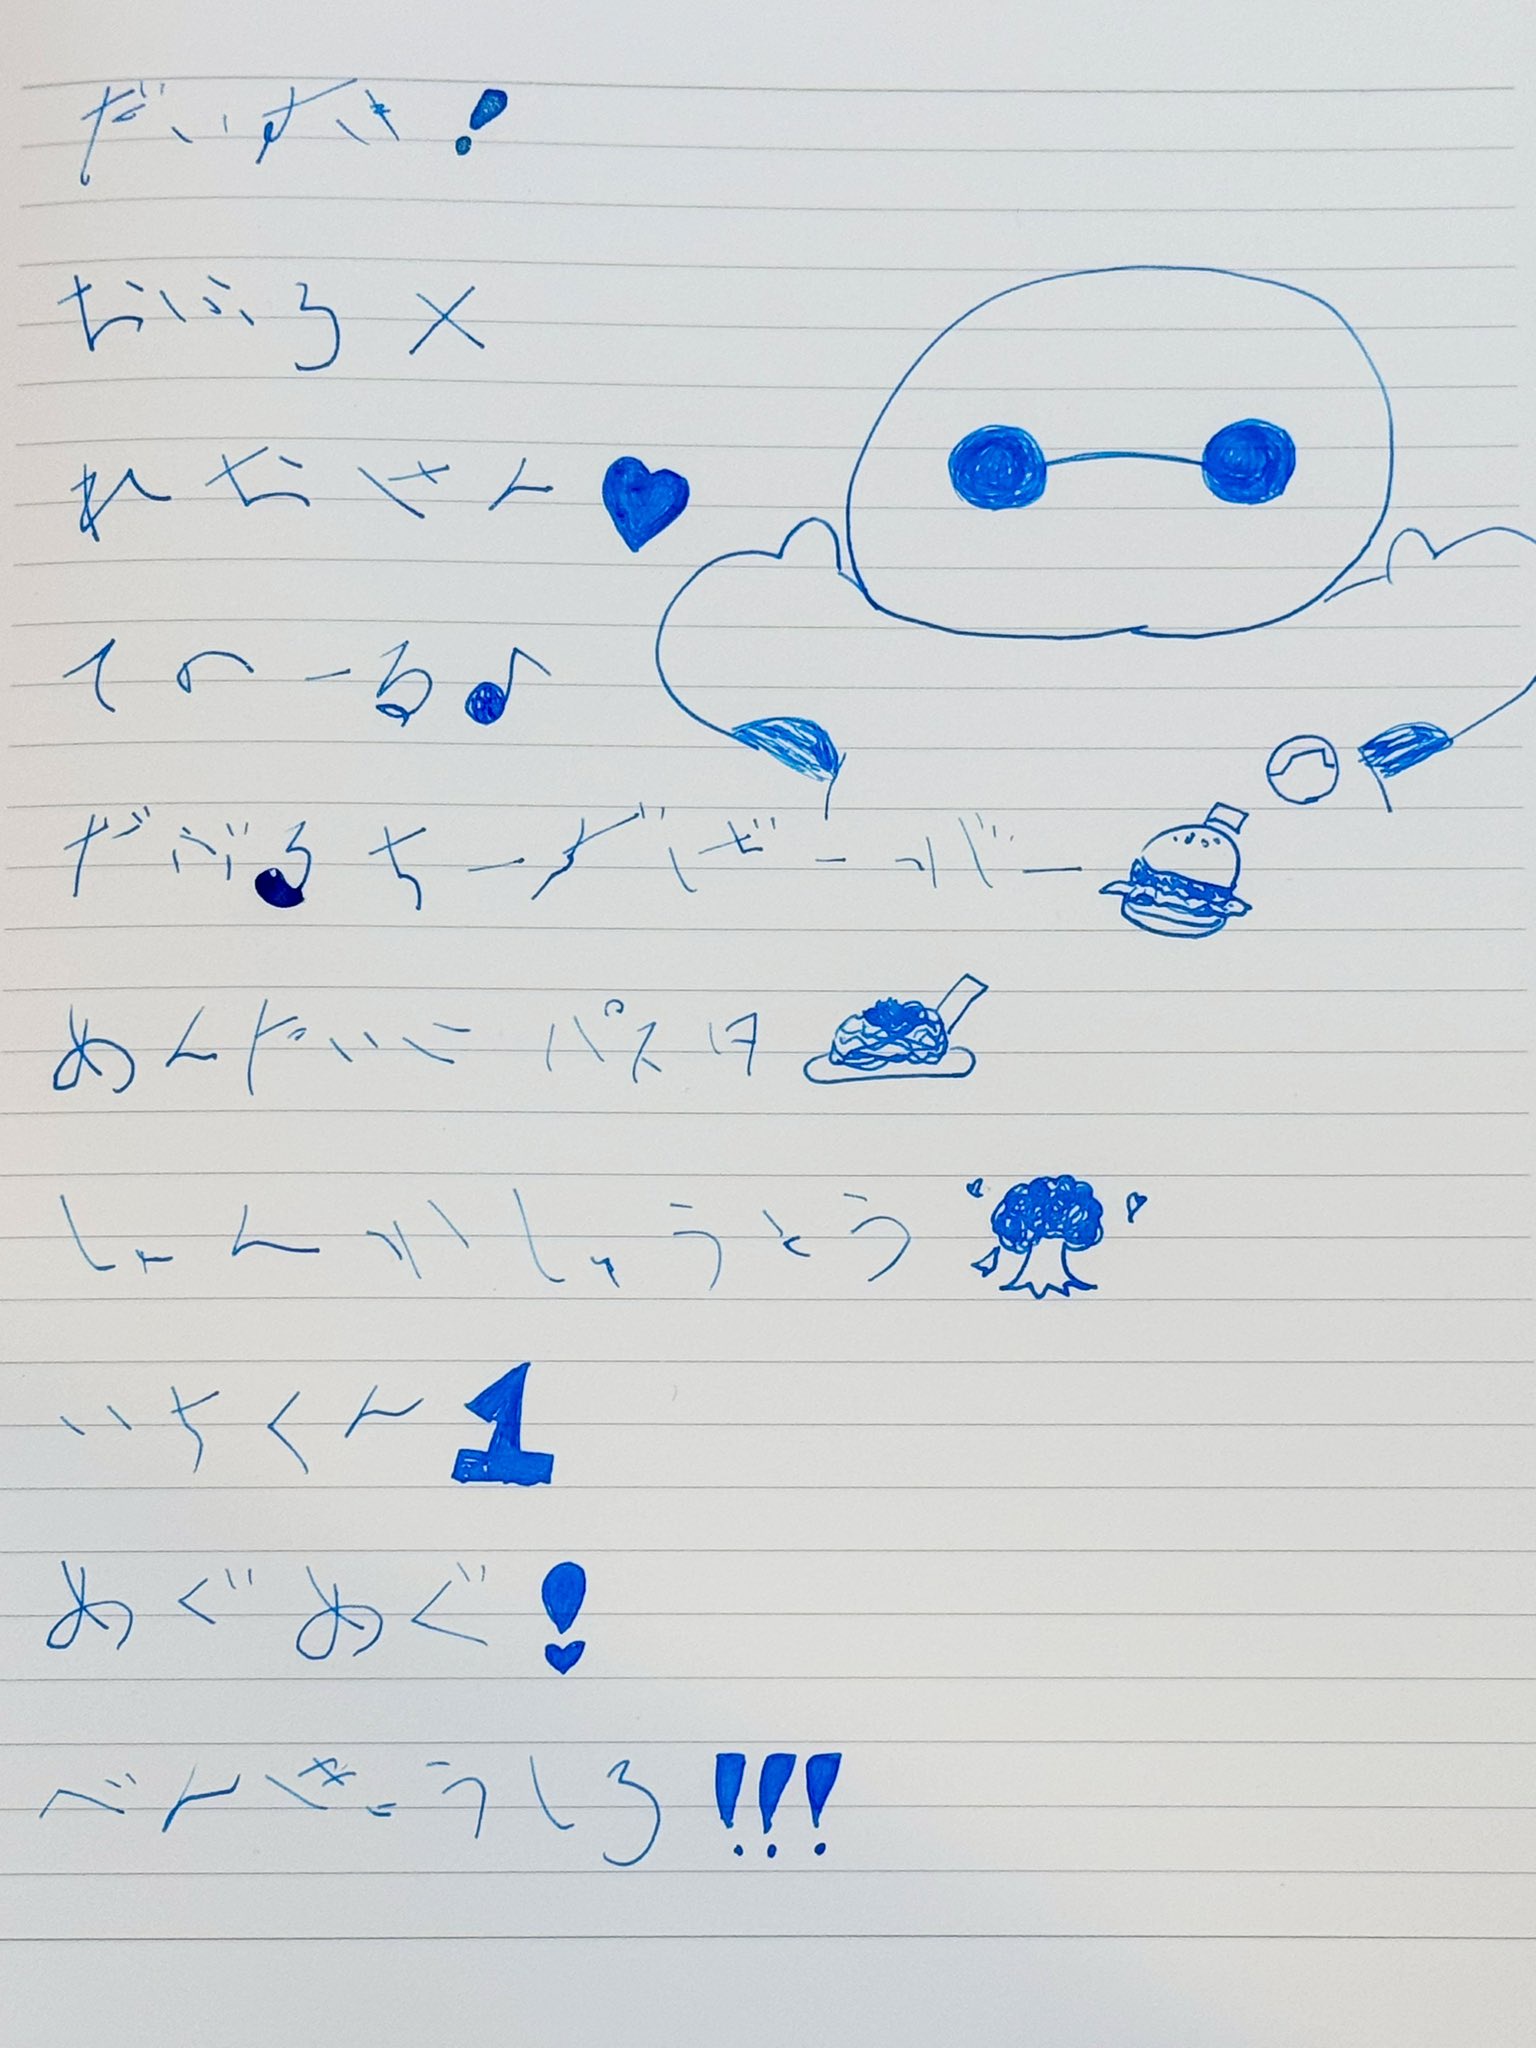 だいすき!
おふろ×
れおさん♥
てのーる♪
だぶるちーずばーがー
めんたいこパスタ
しゃんかしょうとう
いちくん1
めぐめぐ!
べんきょうしろ!!!